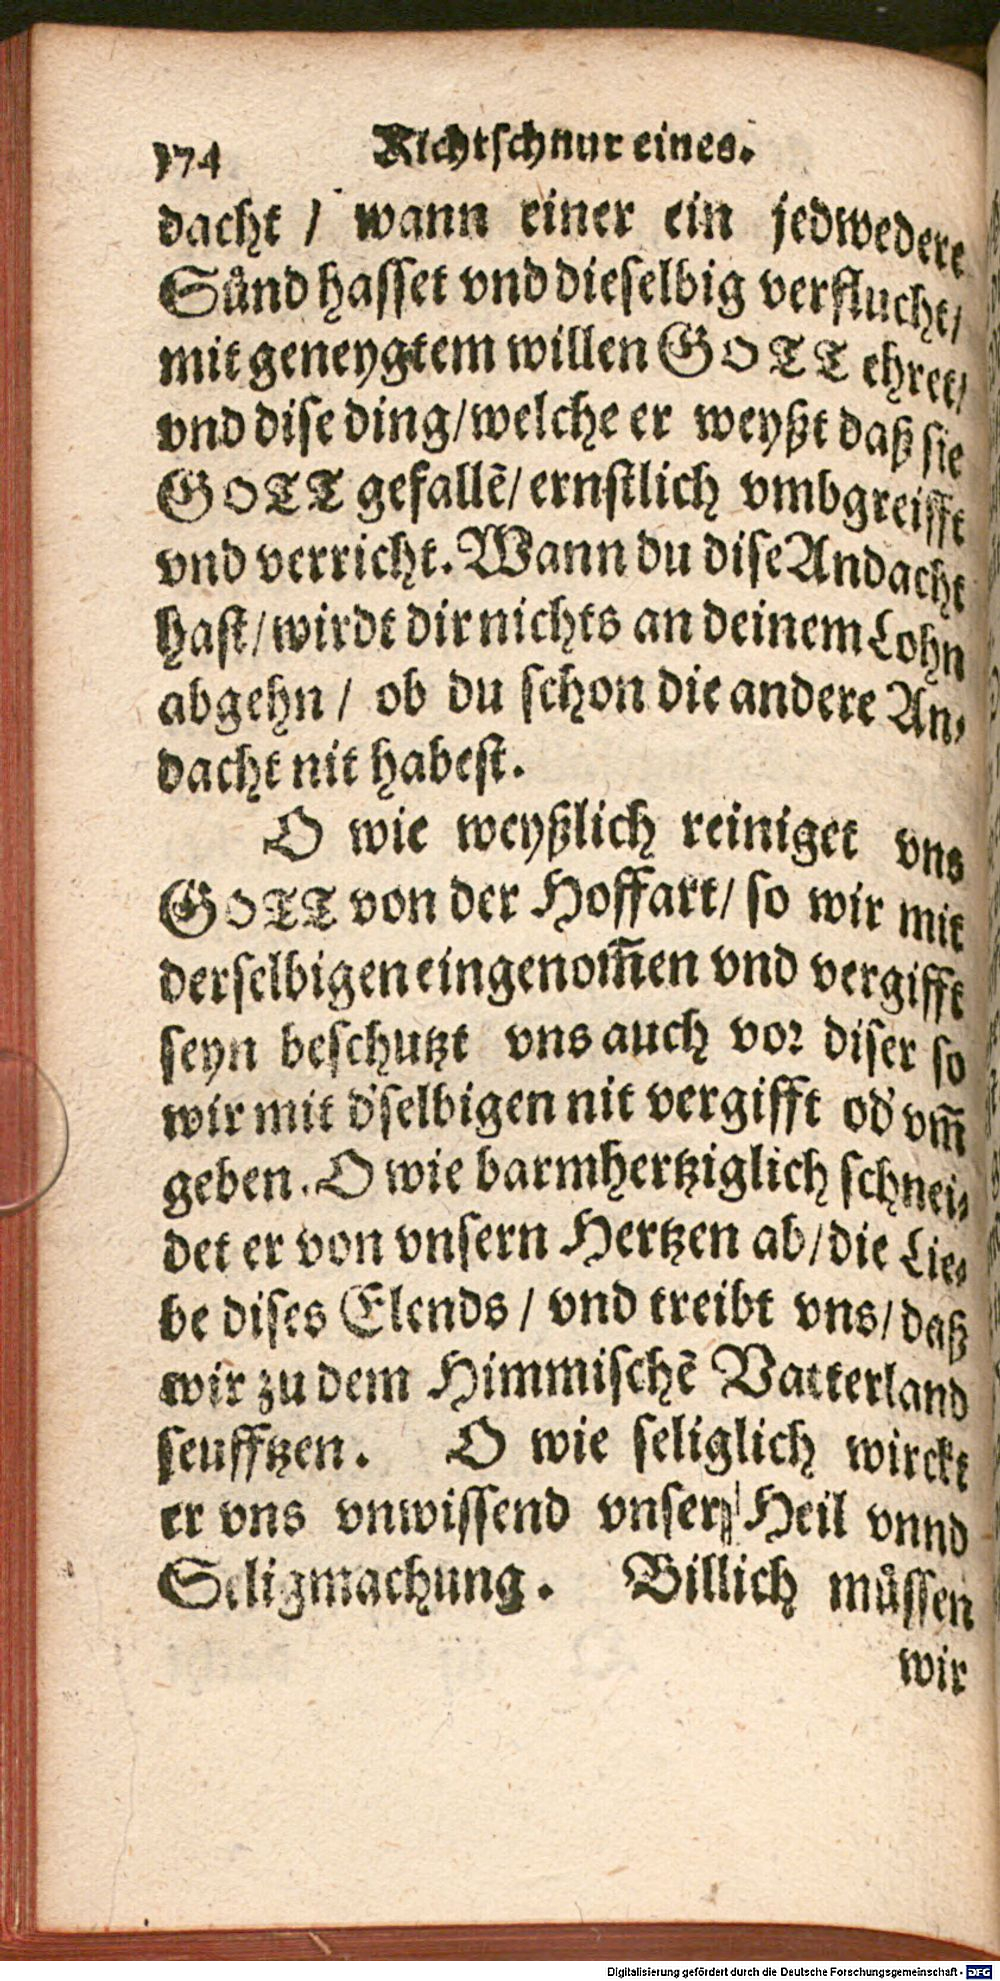 174 Richtschnur eines.
dacht / wann einer ein jedwedere
Sůnd hasset vnd dieselbig verflucht/
mit geneygtem willen GOTT ehret/
vnd dise ding/welche er weyßt daß sie
GOTT gefallē/ ernstlich vmbgreifft
vnd verricht. Wann du dise Andacht
hast/ wirdt dir nichts an deinem Lohn
abgehn / ob du schon die andere An-
dacht nit habest.
O wie weyßlich reiniget vns
GOTT von der Hoffart/ so wir mit
derselbigen eingenom̃en vnd vergifft
seyn beschutzt vns auch vor diser so
wir mit d'selbigen nit vergifft od' vm̃
geben. O wie barmhertziglich schnei-
det er von vnsern Hertzen ab/die Lie-
be dises Elends / vnd treibt vns/ daß
wir zu dem Himmischē Vatterland
seufftzen. O wie seliglich wirckt
er vns vnwissend vnser Heil vnnd
Seligmachung. Billich můssen
wir
Digitalisierung gefördert durch die Deutsche Forschungsgemeinschaft - DFG